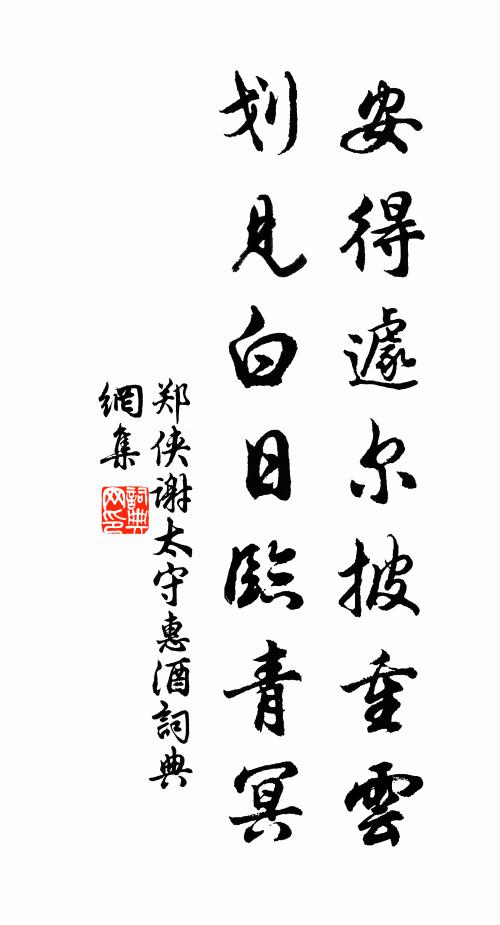 安得遽尔披重雲
划見白日臨青冥
郑侠谢太守惠酒詞典
網集
詞典
网印